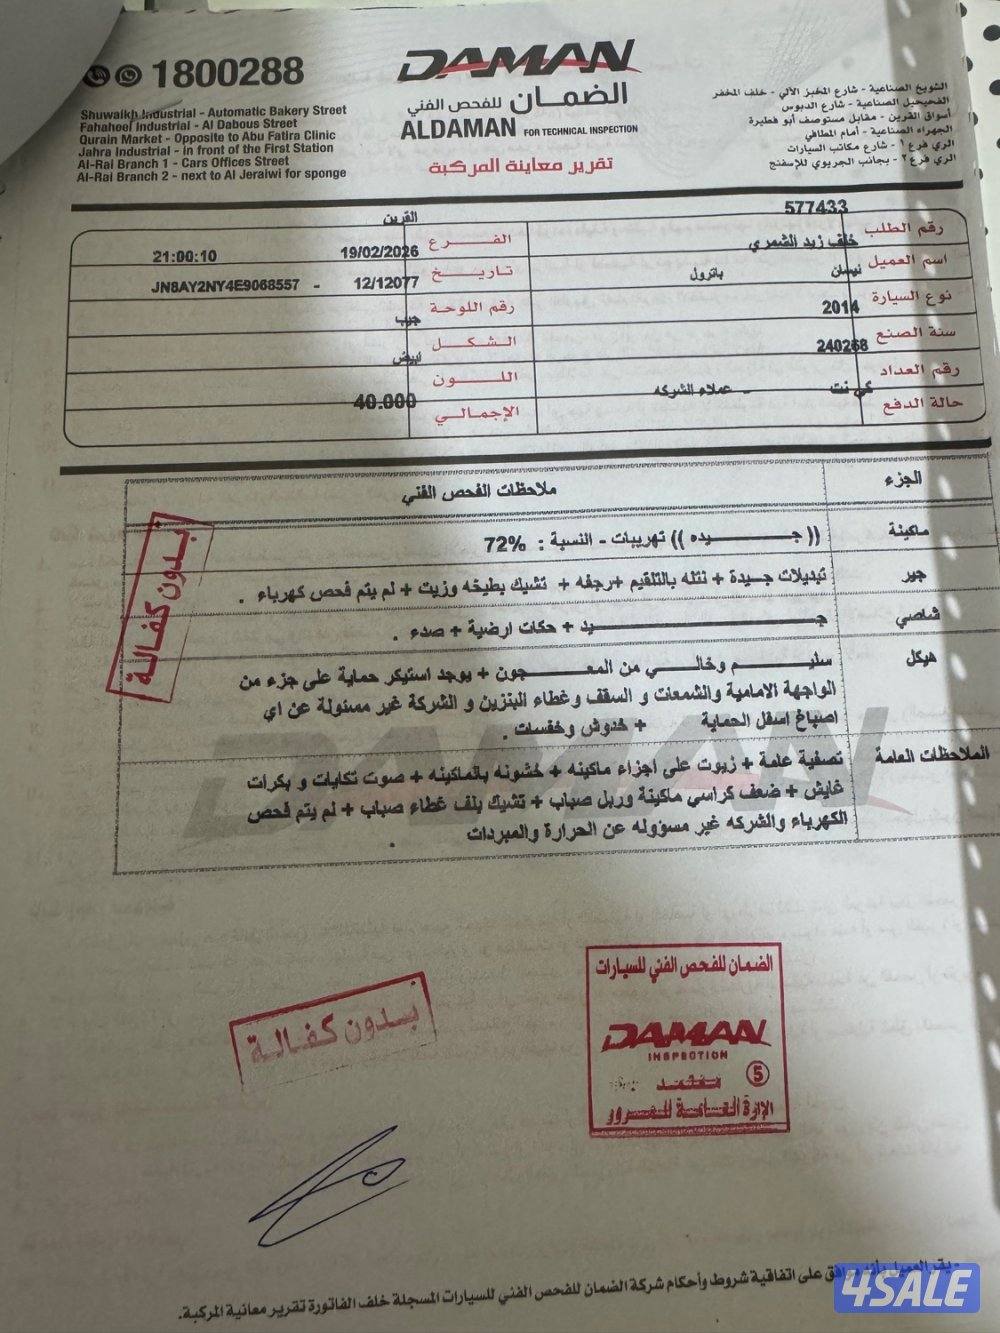 1800288
Shuwaikh Industrial - Automatic Bakery Street
Fahaheel Industrial - Al Dabous Street
Qurain Market - Opposite to Abu Fatira Clinic
Jahra Industrial - in front of the First Station
Al-Rai Branch 1 - Cars Offices Street
Al-Rai Branch 2 - next to Al Jeraiwi for sponge
DAMAN
الضمان للفحص الفني
ALDAMAN FOR TECHNICAL INSPECTION
تقرير معاينة المركبة
الشويخ الصناعية - شارع المخبز الآلي - خلف المخفر
الفحيحيل الصناعية - شارع الدبوس
أسواق القرين - مقابل مستوصف أبو فطيرة
الجهراء الصناعية - أمام المطافي
الري فرع ١ - شارع مكاتب السيارات
الري فرع ٢ - بجانب الجريوي للإسفنج
رقم الطلب 577433
الفرع القرين
اسم العميل خلف زيد الشمري
تاريخ 19/02/2026 21:00:10
نوع السيارة نيسان باترول
رقم اللوحة 12/12077 - JN8AY2NY4E9068557
سنة الصنع 2014
الشكل جيب
رقم العداد 240268
اللون ابيض
حالة الدفع كي نت - عملاء الشركه
الإجمالي 40.000
الجزء ملاحظات الفحص الفني
ماكينة (( جيده )) تهريبات - النسبة : 72%
جير تبديلات جسيدة + نتله بالتلقيم +رجفه + تشيك بطيخه وزيت + لم يتم فحص كهرباء .
شاصي جيد + حكات ارضية + صدء .
هيكل سليم وخالي من المعجون + يوجد استيكر حماية على جزء من
الواجهة الامامية والشمعات و السقف وغطاء البنزين و الشركة غير مسئولة عن اي
اصباغ اسفل الحماية + خدوش وخفسات .
الملاحظات العامة تصفية علمة + زيوت على اجزاء ماكينه + خشونه بالماكينه + صوت تكايات و بكرات
غايش + ضعف كراسي ماكينة وربل صباب + تشيك بلف غطاء صباب + لم يتم فحص
الكهرباء والشركه غير مسؤوله عن الحرارة والمبردات .
بدون كفالة
DAMAN
بدون كفالة
الضمان للفحص الفني للسيارات
DAMAN
INSPECTION
معتمد 5
الإدارة العامة للمرور
- يقر العميل بأنه موافق على اتفاقية شروط وأحكام شركة الضمان للفحص الفني للسيارات المسجلة خلف الفاتورة تقرير معاينة المركبة.
4SALE